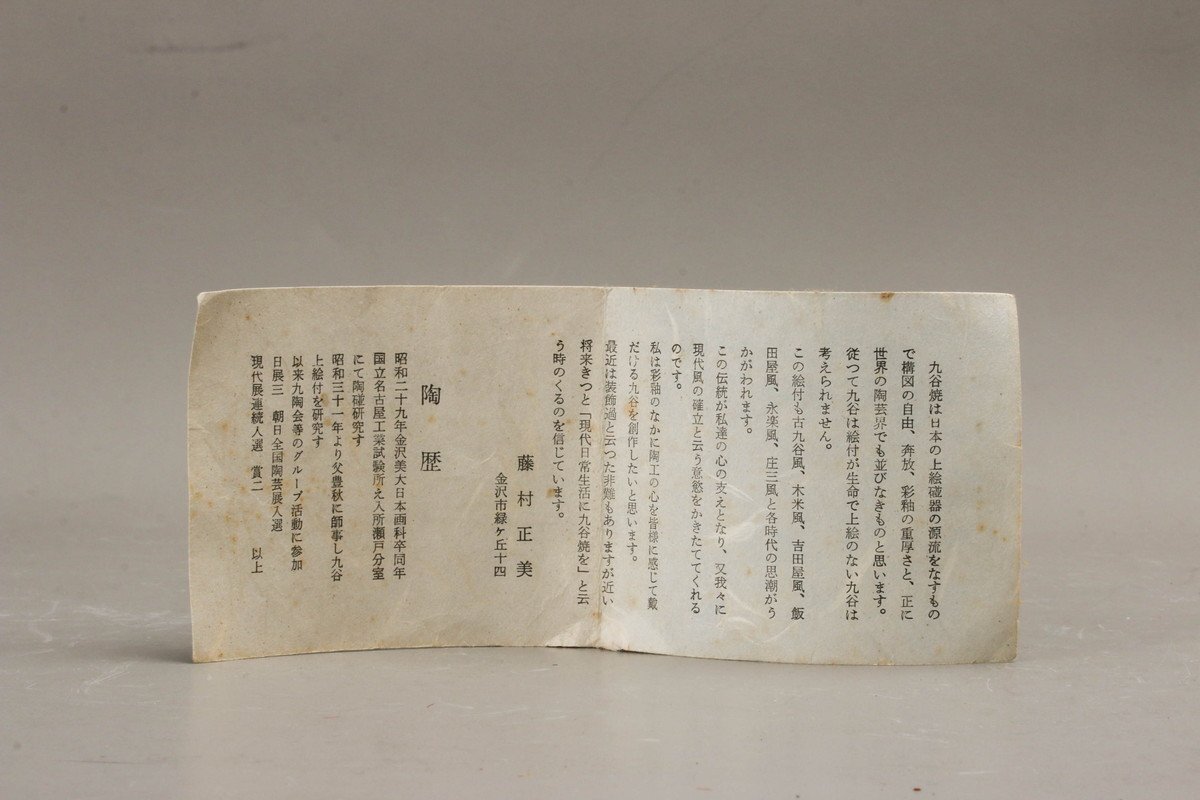 九谷焼は日本の上絵磁器の源流をなすもの
で構図の自由、奔放、彩釉の重厚さと、正に
世界の陶芸界でも並びなきものと思います。
従つて九谷は絵付が生命で上絵のない九谷は
考えられません。
この絵付も古九谷風、木米風、吉田屋風、飯
田屋風、永楽風、庄三風と各時代の思潮がう
かがわれます。
この伝統が私達の心の支えとなり、又我々に
現代風の確立と云う意慾をかきたててくれる
のです。
私は彩釉のなかに陶工の心を皆様に感じて戴
だける九谷を創作したいと思います。
最近は装飾過と云つた非難もありますが近い
将来きつと「現代日常生活に九谷焼を」と云
う時のくるのを信じています。
藤村正美
金沢市緑ケ丘十四
陶歴
昭和二十九年金沢美大日本画科卒同年
国立名古屋工業試験所え入所瀬戸分室
にて陶磁研究す
昭和三十一年より父豊秋に師事し九谷
上絵付を研究す
以来九陶会等のグループ活動に参加
日展三 朝日全国陶芸展入選
現代展連続入選 賞二 以上